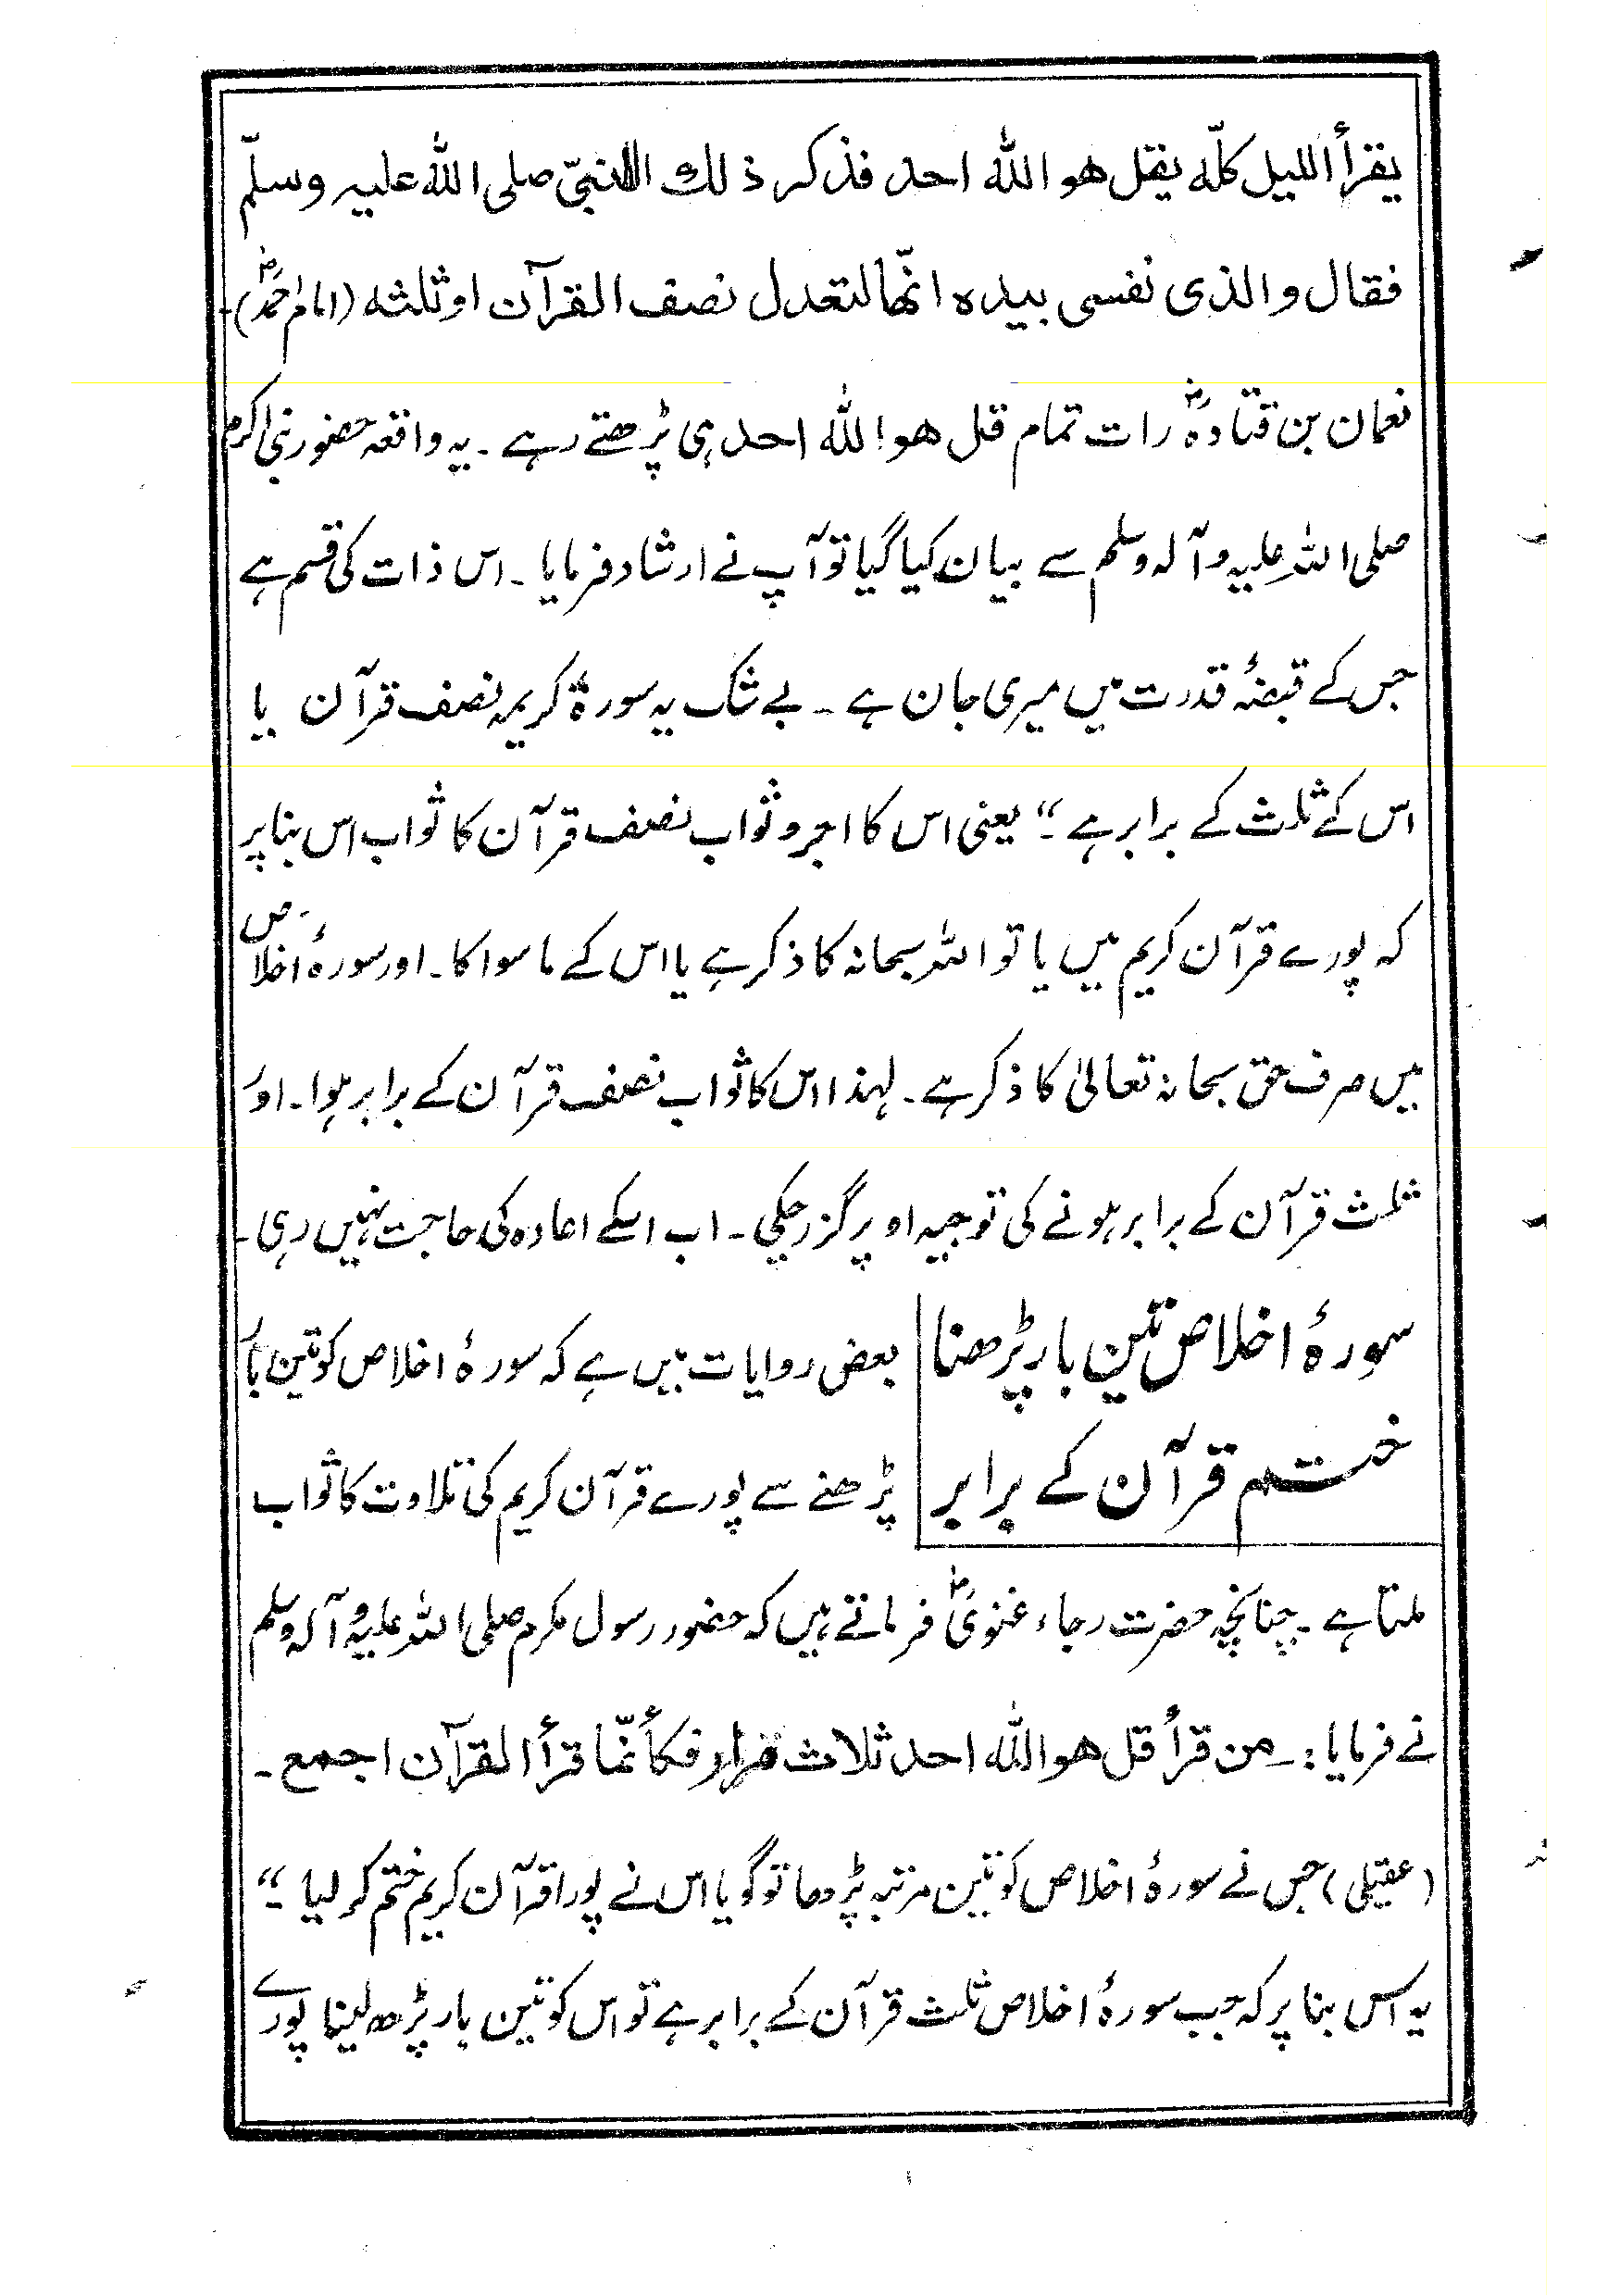 يقرأ الليل كلّه يقل هو الله احد فذكر ذلك النبيّ صلى الله عليه وسلّم
فقال والذى نفسى بيده انّها لتعدل نصف القرآن او ثلثه (امام احمدؒ)۔
نعمان بن قتادہؓ رات تمام قل هو الله احد ہی پڑھتے رہے۔ یہ واقعہ حضور نبی اکرم
صلی اللہ علیہ وآلہ وسلم سے بیان کیا گیا تو آپ نے ارشاد فرمایا۔ اس ذات کی قسم ہے
جس کے قبضۂ قدرت میں میری جان ہے۔ بے شک یہ سورۃ کریمہ نصف قرآن یا
اس کے ثلث کے برابر ہے۔“ یعنی اس کا اجر و ثواب نصف قرآن کا ثواب اس بنا پر
کہ پورے قرآن کریم میں یا تو اللہ سبحانہ کا ذکر ہے یا اس کے ما سوا کا۔ اور سورۂ اخلاص
میں صرف حق سبحانہ تعالیٰ کا ذکر ہے۔ لہذا اس کا ثواب نصف قرآن کے برابر ہوا۔ اور
ثلث قرآن کے برابر ہونے کی توجیہ اوپر گزر چکی۔ اب اسکے اعادہ کی حاجت نہیں رہی۔
سورۂ اخلاص تین بار پڑھنا
ختم قرآن کے برابر
بعض روایات میں ہے کہ سورۂ اخلاص کو تین بار
پڑھنے سے پورے قرآن کریم کی تلاوت کا ثواب
ملتا ہے۔ چنانچہ حضرت رجاء غنویؓ فرماتے ہیں کہ حضور رسول مکرم صلی اللہ علیہ وآلہ وسلم
نے فرمایا:۔ من قرأ قل هو الله احد ثلاث فكأنّما قرأ القرآن اجمع۔
(عقیلی) جس نے سورۂ اخلاص کو تین مرتبہ پڑھا تو گویا اس نے پورا قرآن کریم ختم کر لیا۔“
یہ اس بنا پر کہ جب سورۂ اخلاص ثلث قرآن کے برابر ہے تو اس کو تین بار پڑھ لینا پورے